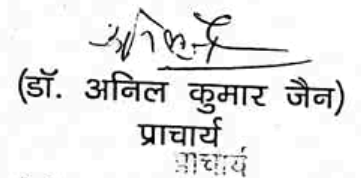 (डॉ. अनिल कुमार जैन)
प्राचार्य
प्राचार्य